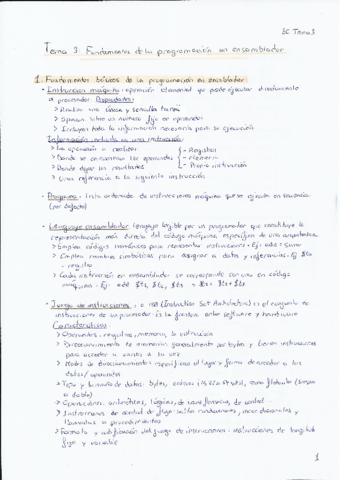 EC Tema 3
Tema 3: Fundamentos de la programación en ensamblador
1. Fundamentos básicos de la programación en ensamblador
· Instrucción máquina: operación elemental que puede ejecutar directamente
el procesador. Propiedades:
> Realiza una única y sencilla tarea
> Operan sobre un número fijo de operandos
> Incluyen toda la información necesaria para su ejecución
Información incluida en una instrucción:
> La operación a realizar
> Donde se encuentran los operandos - Registros
> Donde dejar los resultados - Memoria
- Propia instrucción
> Una referencia a la siguiente instrucción
· Programa: lista ordenada de instrucciones máquina que se ejecutan en secuencia
(por defecto)
· Lenguaje ensamblador: lenguaje legible por un programador que constituye la
representación más directa del código máquina, específica de una arquitectura
> Emplea códigos numéricos para representar instrucciones. Ej: add = suma
> Emplea nombres simbólicos para asignar a datos y referencias. Ej:
= registro
> Cada instrucción en ensamblador se corresponde con una en código
máquina. Ej: add
· Juego de instrucciones: o ISA (Instruction Set Architecture) es el conjunto de
instrucciones de un procesador. Es la frontera entre software y hardware
Características:
> Operandos: registros, memoria, la instrucción
> Direccionamiento de memoria: generalmente por bytes y tienen instrucciones
para acceder a varios a la vez
> Modos de direccionamiento: especifican el lugar y forma de acceder a los
datos / operandos
> Tipo y tamaño de datos: bytes, enteros coma flotante (simple
o doble)
> Operaciones: aritméticas, lógicas, de transferencia, de control
> Instrucciones de control de flujo: saltos condicionales, incondicionales y
llamadas a procedimientos
> Formato y codificación del juego de instrucciones: instrucciones de longitud
fija y variable
1